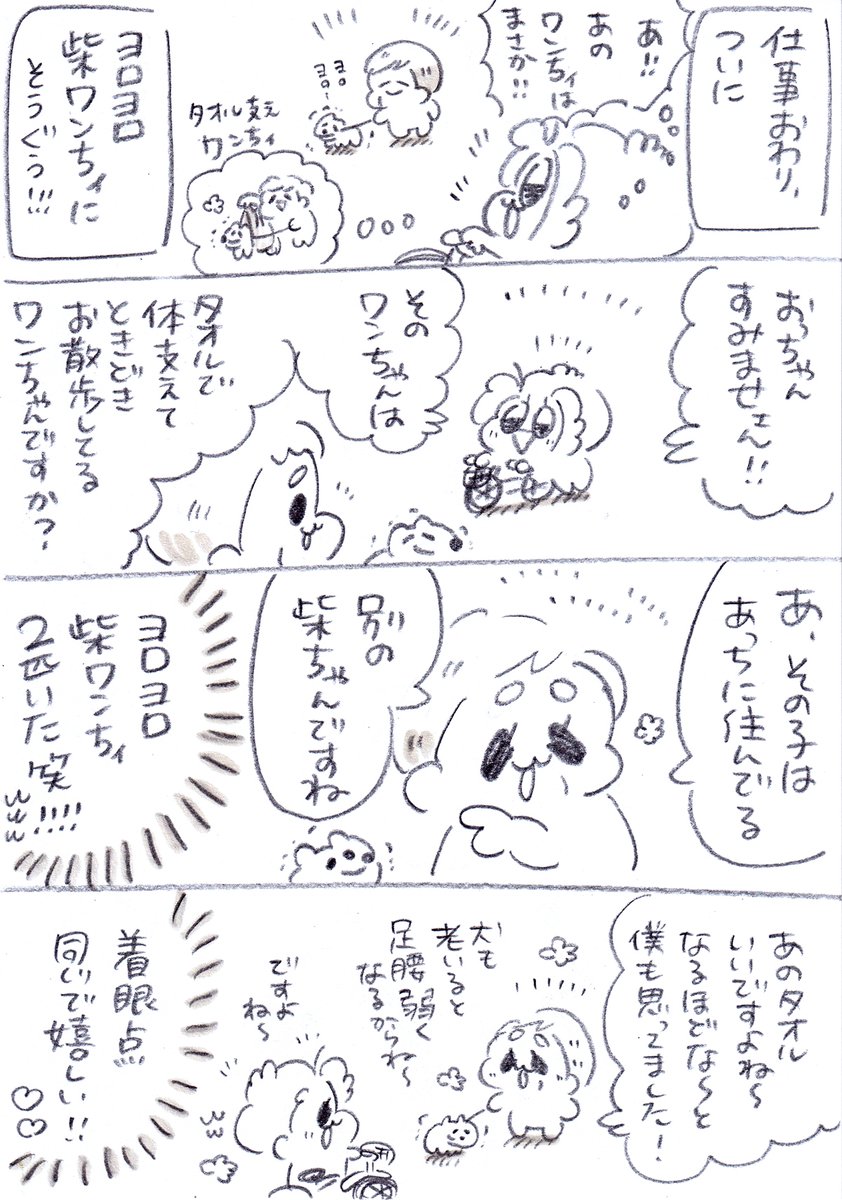 仕事おわり、
ついに
あ!!
あの
ワンちィは
まさか!!
ヨロ
ヨロ〜
タオル支え
ワンちィ
ヨロヨロ
柴ワンちィに
そうぐう!!!
おっちゃん
すみませェん!!
その
ワンちゃんは
タオルで
体支えて
ときどき
お散歩してる
ワンちゃんですか?
あ、その子は
あっちに住んでる
別の
柴ちゃんですね
ヨロヨロ
柴ワンちィ
2匹いた笑!!!!
あのタオル
いいですよね〜
なるほどな〜と
僕も思ってました!
犬も
老いると
足腰弱く
なるからね〜
ですよ
ね〜
着眼点
同じで嬉しい!!